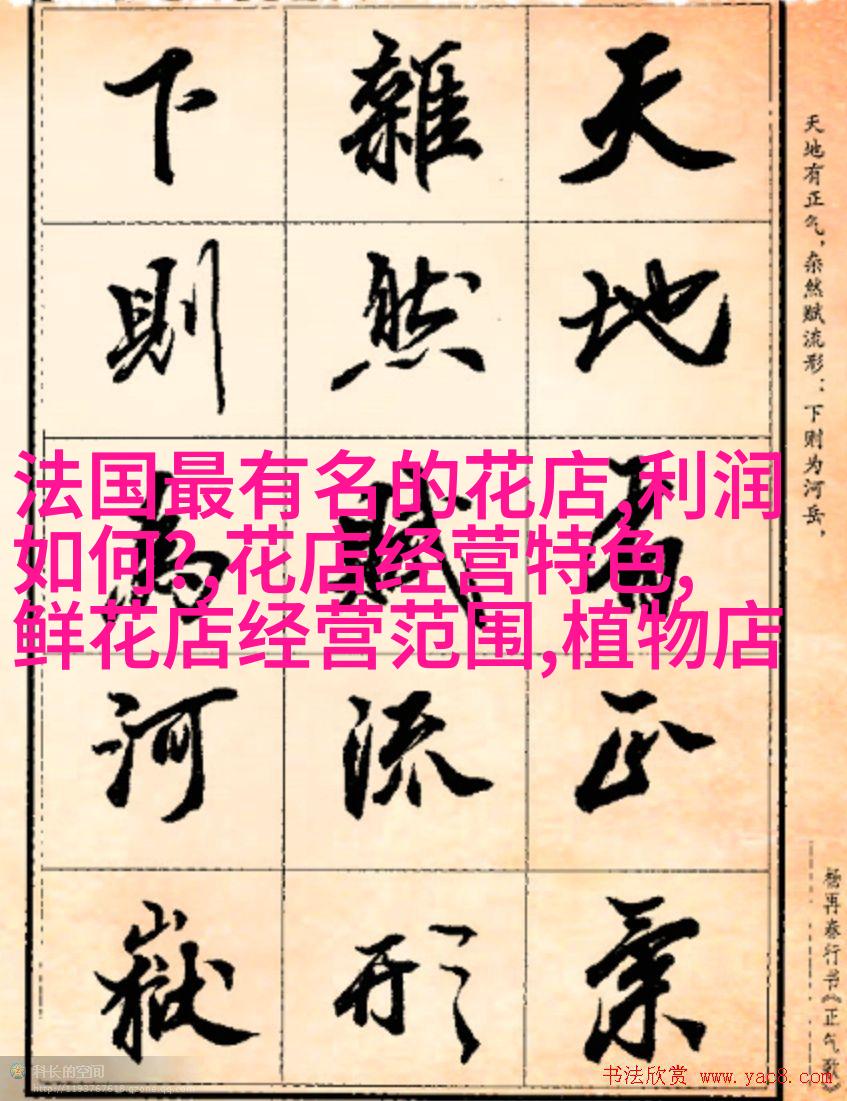 天地有正氣
雜然賦流形
下則為河嶽
天地有正气，杂然赋流形：下则为河岳，
杨再春行书《正气歌》
法国最有名的花店,利润
如何?,花店经营特色,
鲜花店经营范围,植物店
科长的空间
http://1193767618.qzone.qq.com
书法欣赏 www.yac8.com